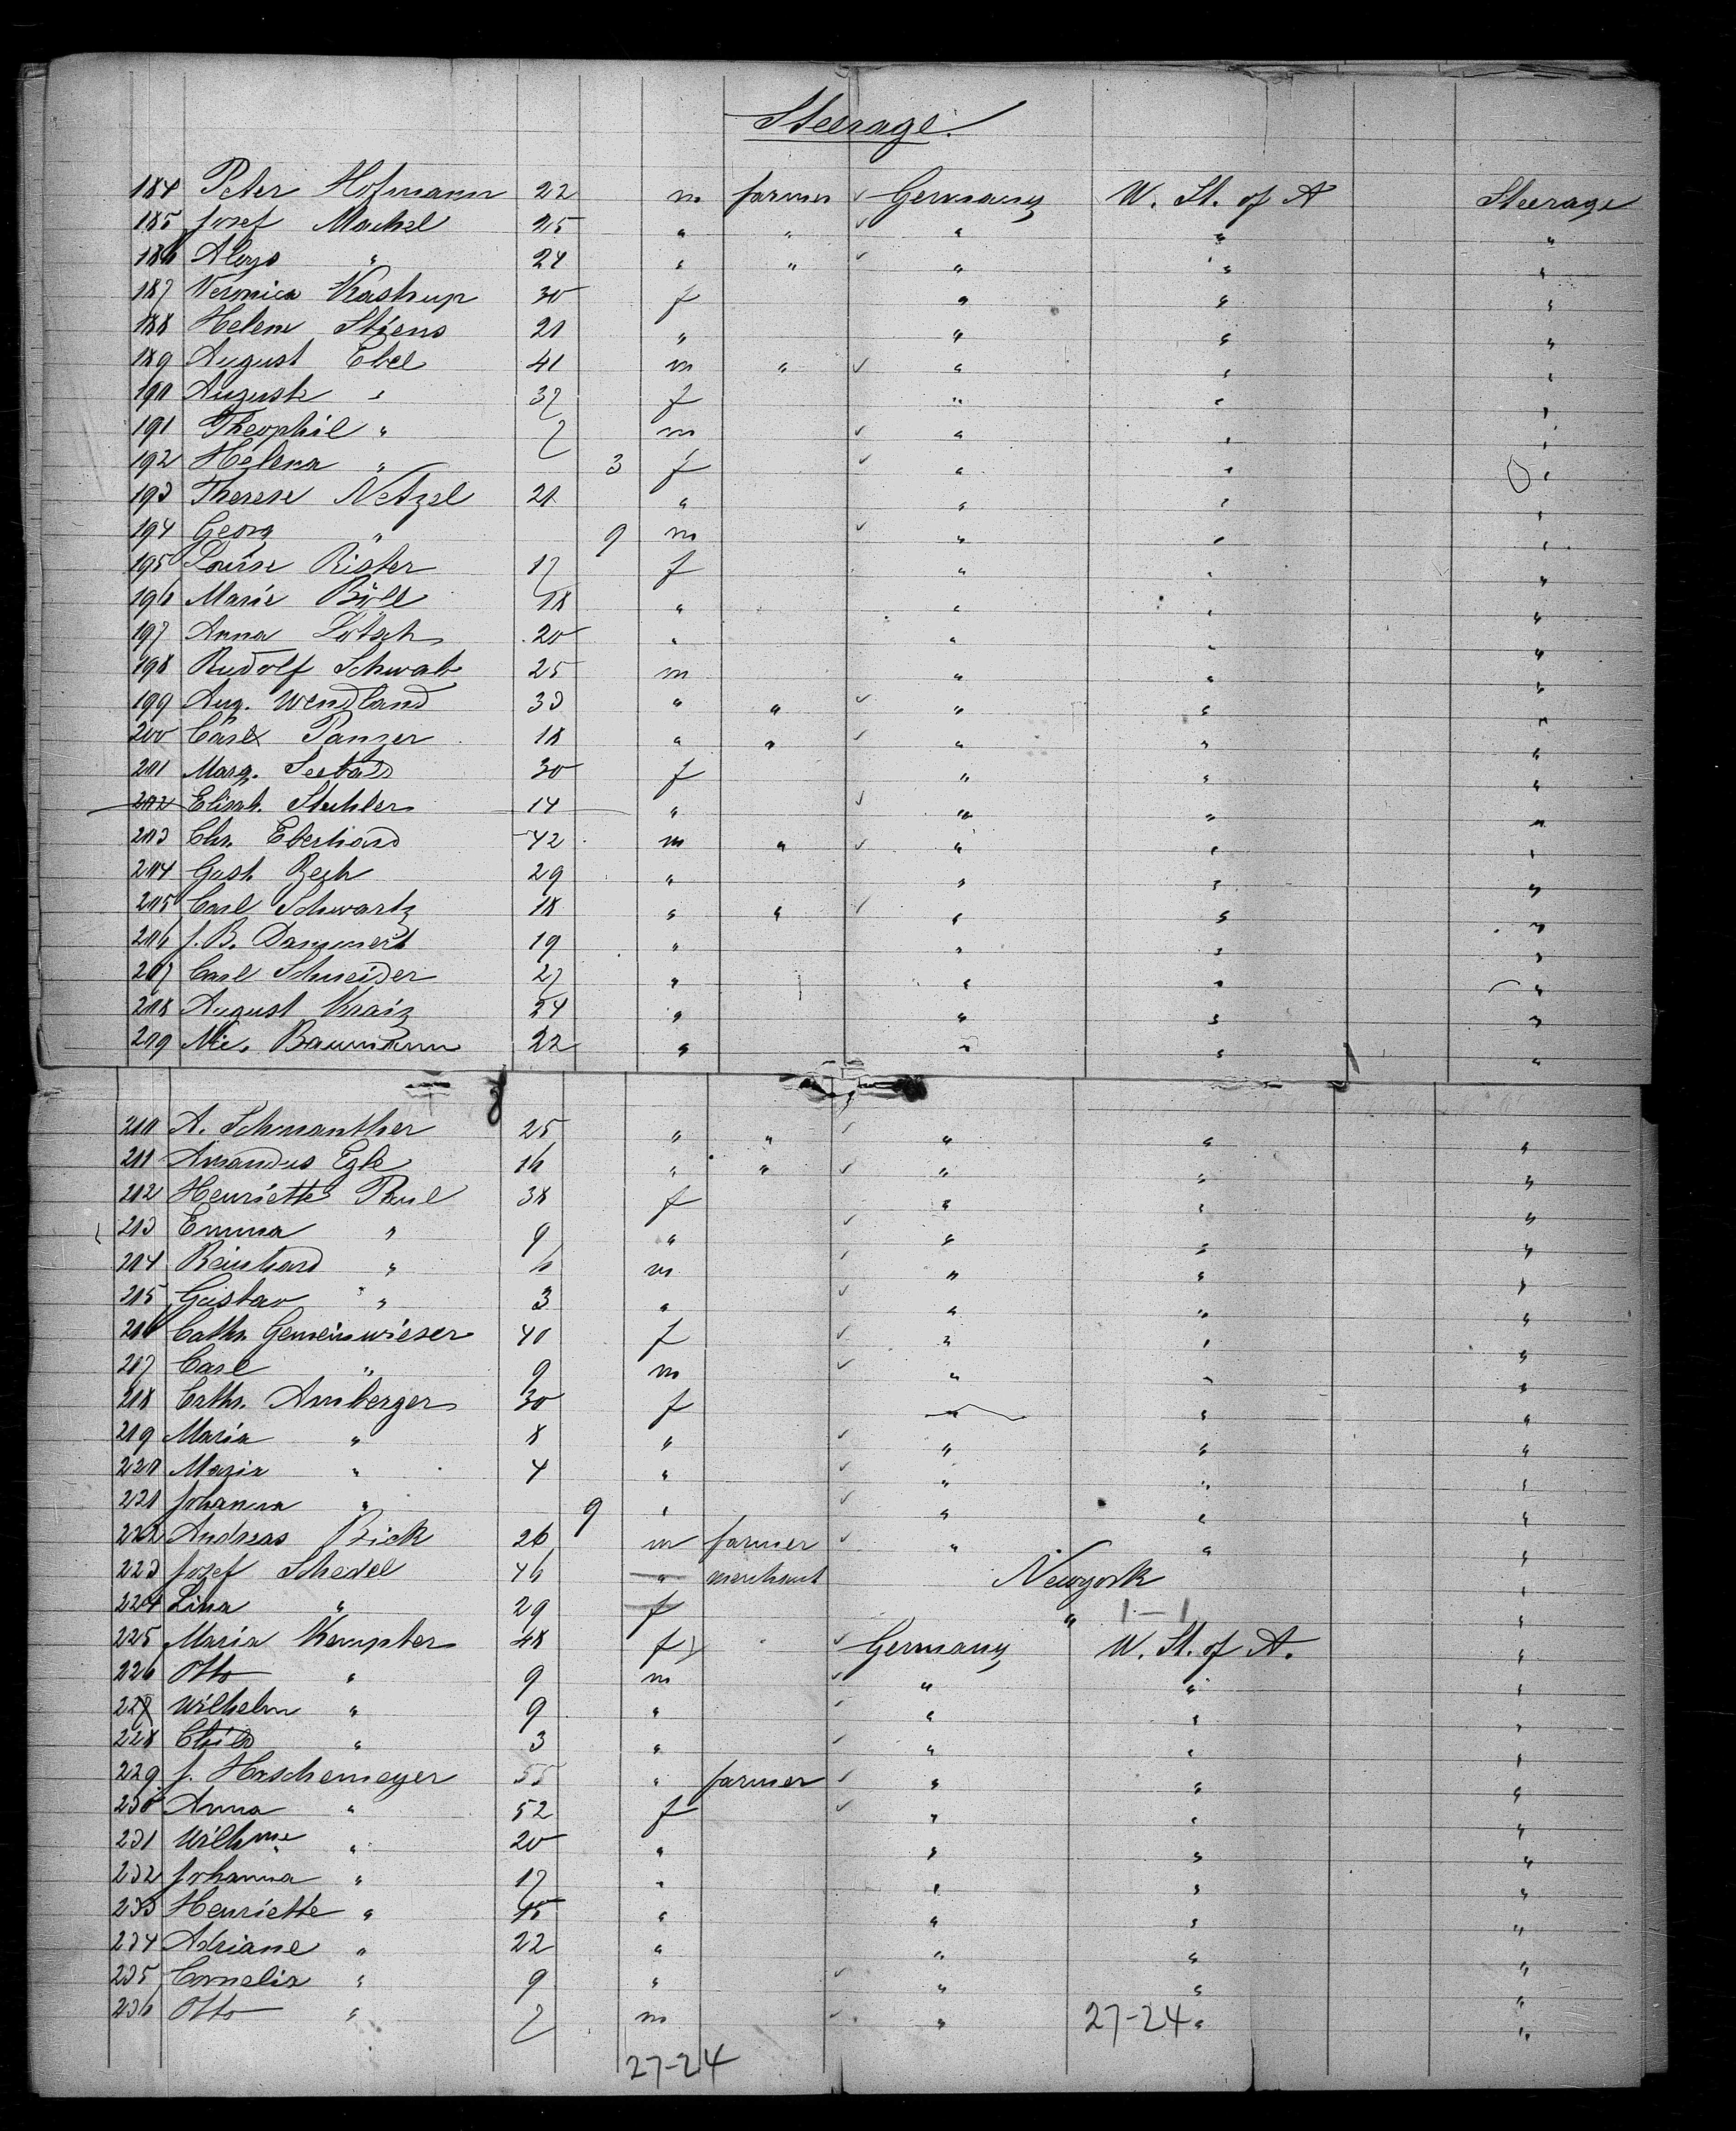 Steerage.
184 Peter Hofmann 22 m farmer ✓ Germany U. St. of A Steerage
185 Josef Machel 25 " " ✓ " " "
186 Aloys " 24 " " ✓ " " "
187 Veronica Kastrup 30 f " " "
188 Helene Stiens 21 " " " "
189 August Ebel 41 m " ✓ " " "
190 Auguste " 37 f " " "
191 Theophil " 7 m ✓ " " "
192 Helena " 3 f ✓ " " "
193 Therese Netzel 21 " " " "
194 Georg " 9 m ✓ " " "
195 Louise Rister 17 f " " "
196 Marie Böll 18 " " " "
197 Anna Lötsch 20 " " " "
198 Rudolf Schwab 25 m " " "
199 Aug. Wendland 33 " " ✓ " " "
200 Carl Panzer 18 " " ✓ " " "
201 Marg. Seebald 30 f " " "
202 Elisab. Stuhler 14 " ✓ " " "
203 Chr. Eberhard 42 m " ✓ " " "
204 Gust. 29 " " " "
205 Carl Schwartz 18 " " ✓ " " "
206 J. B. Dammert 19 " " " "
207 Carl Schneider 27 " " " "
208 August Kraiz 24 " " " "
209 Nic. Baumann 22 " " " "
210 A. Schmanther 25 " " ✓ " " "
211 Amandus Egle 16 " " ✓ " " "
212 Henriette Paul 38 f " " "
213 Emma " 9 " ✓ " " "
214 Reinhard " 6 m ✓ " " "
215 Gustav " 3 " ✓ " " "
216 Cath. Gemeinwieser 40 f ✓ " " "
217 Carl " 9 m ✓ " " "
218 Cath. Amberger 30 f " " "
219 Maria " 8 " ✓ " " "
220 Maria " 4 " ✓ " " "
221 Johanna " 9 " ✓ " " "
222 Andreas Bick 26 m farmer ✓ " " "
223 Josef Schedel 46 " merchant Newyork "
224 Lina " 29 f " 1-1 "
225 Maria Kempter 48 f ✓ Germany U. St. of A. "
226 Otto " 9 m ✓ " " "
227 Wilhelm " 9 " ✓ " " "
228 Child " 3 " ✓ " " "
229 J. Haschemeyer 55 " farmer ✓ " " "
230 Anna " 52 f ✓ " " "
231 Wilhme " 20 " " " "
232 Johanna " 17 " " " "
233 Henriette " 15 " " " "
234 Adriane " 22 " " " "
235 Cornelia " 9 " ✓ " " "
236 Otto " 7 m ✓ " 27-24 " "
27-24